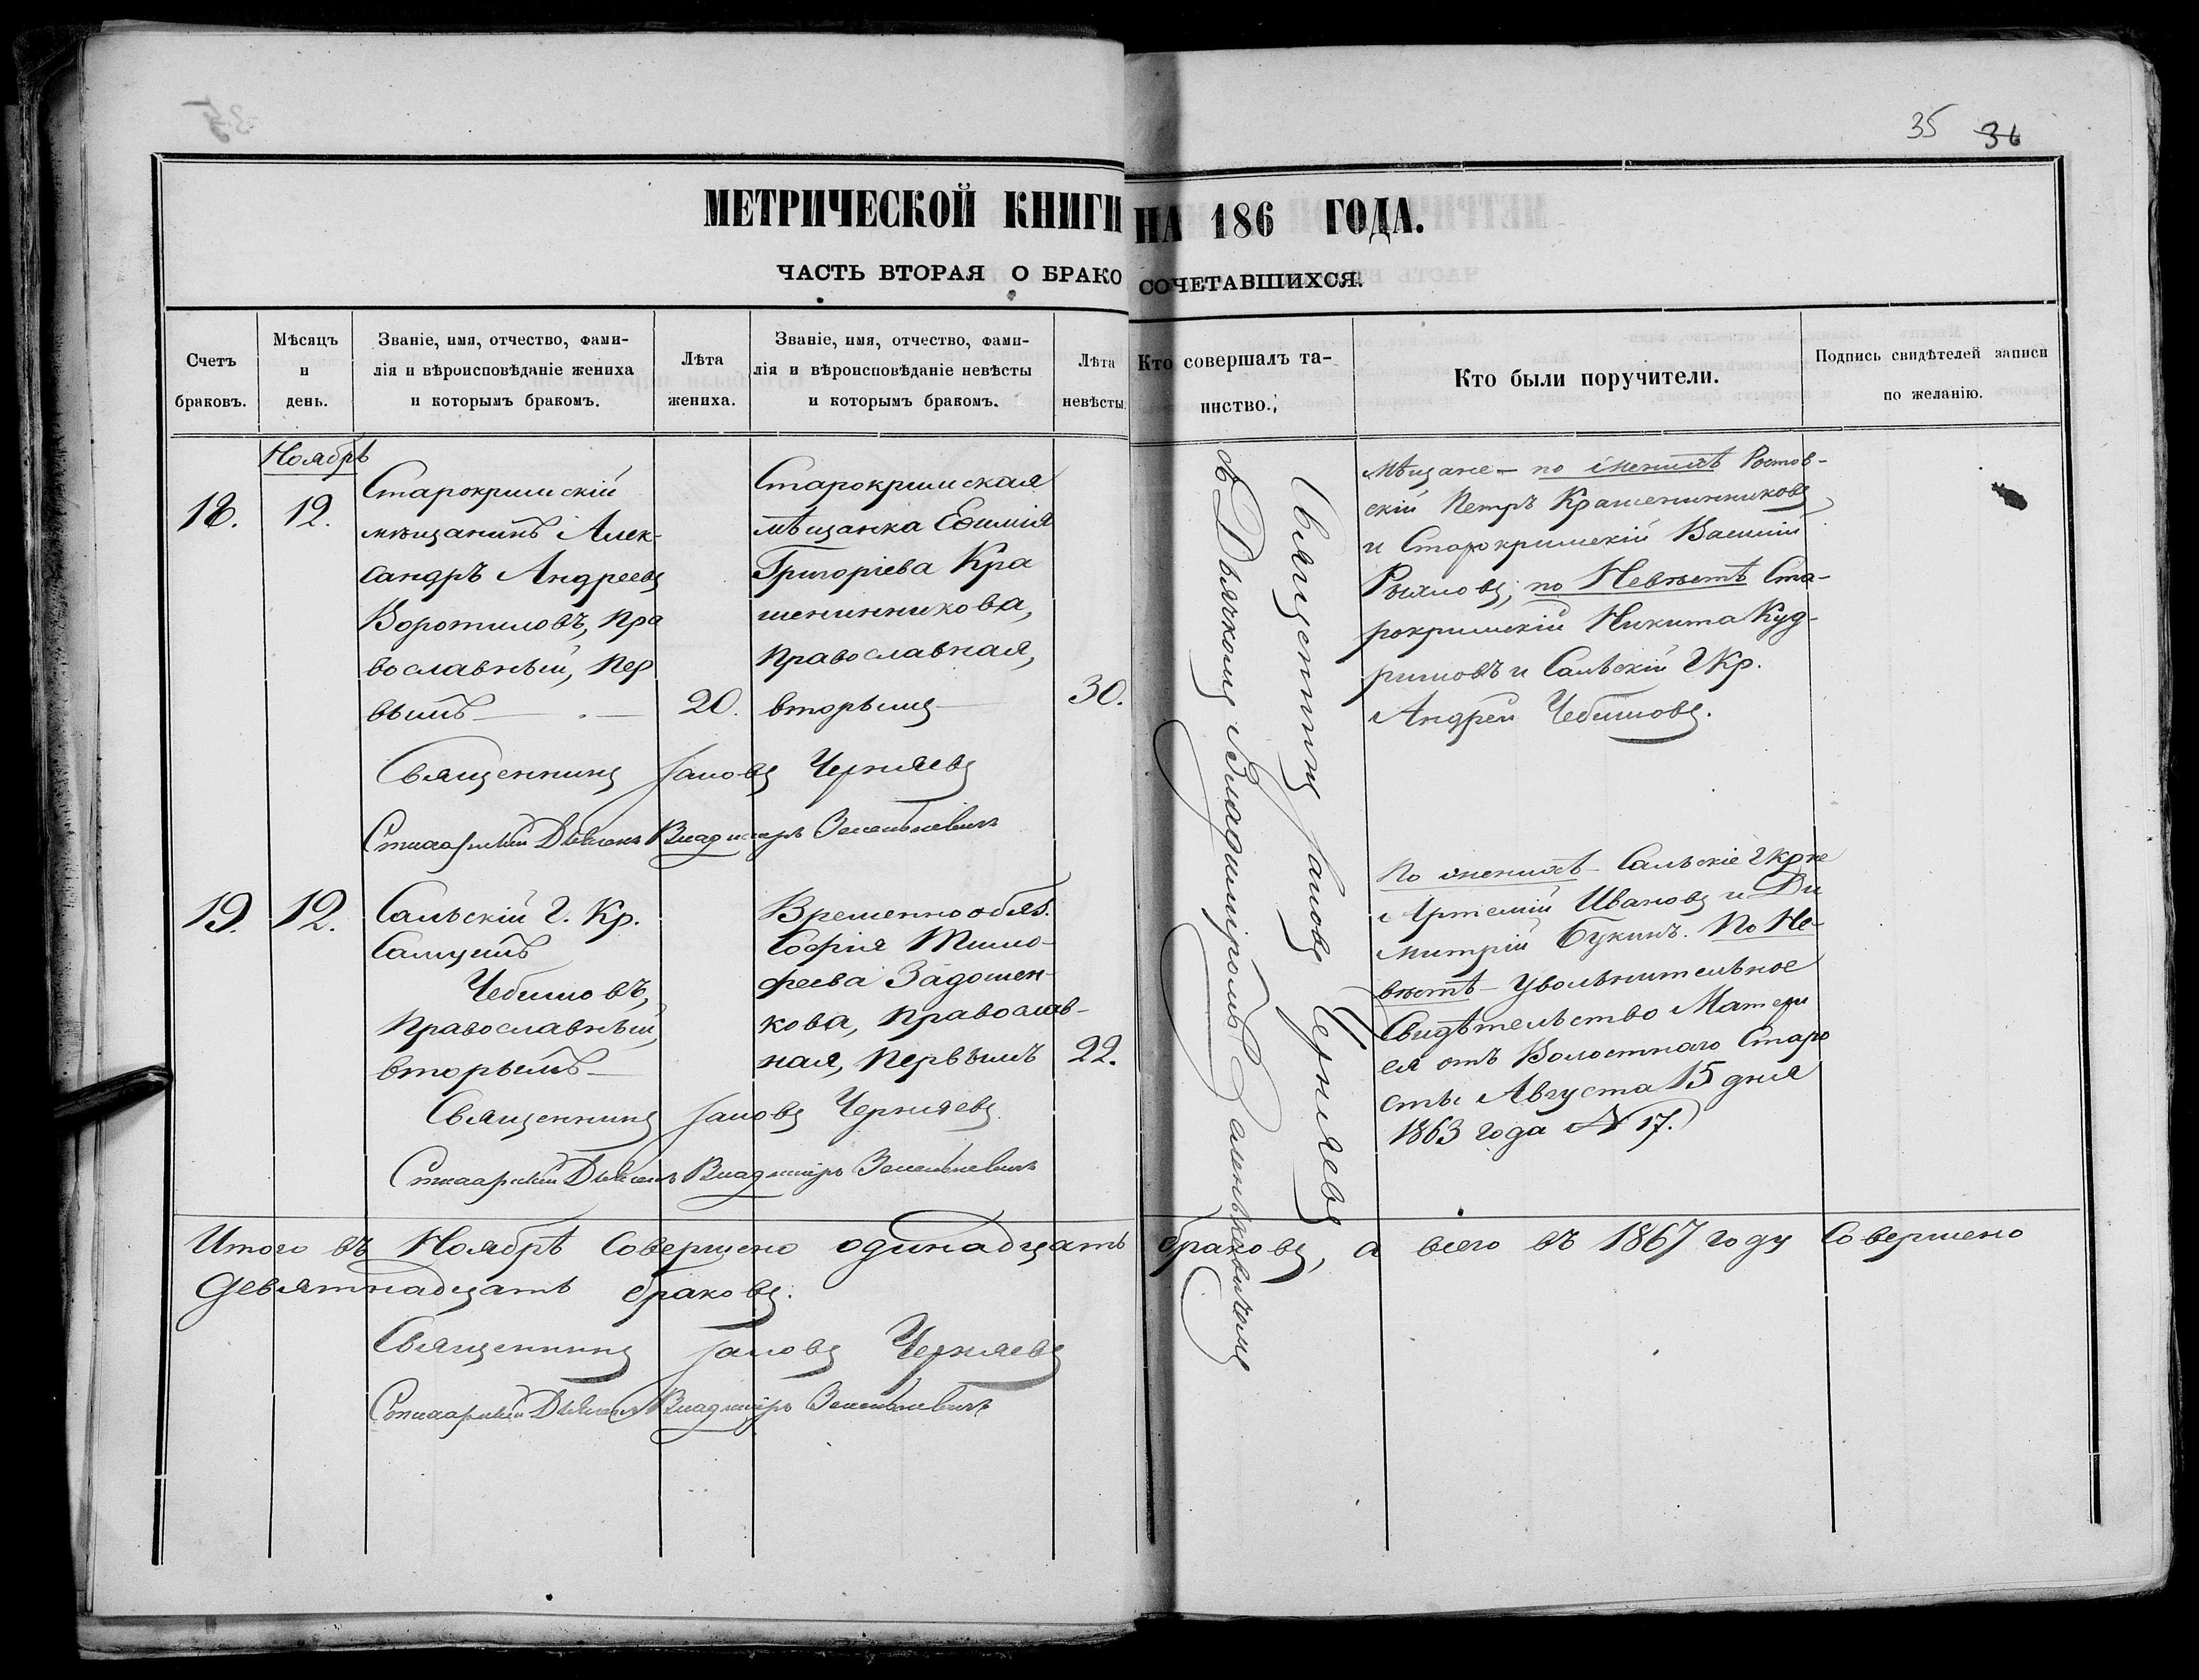 35 36
МЕТРИЧЕСКОЙ КНИГИ НА 186 ГОДА.
ЧАСТЬ ВТОРАЯ О БРАКОСОЧЕТАВШИХСЯ.
Счетъ
браковъ.
Мѣсяцъ
и
день.
Званіе, имя, отчество, фами-
лія и вѣроисповѣданіе жениха
и которымъ бракомъ.
Лѣта
жениха.
Званіе, имя, отчество, фами-
лія и вѣроисповѣданіе невѣсты
и которымъ бракомъ.
Лѣта
невѣсты.
Кто совершалъ та-
инство.
Кто были поручители.
Подпись свидѣтелей записи
по желанію.
Ноябрь
18.
12.
Старокрымскій
мѣщанинъ Алек-
сандръ Андреевъ
Воротиловъ, пра
вославный, пер
вымъ
20.
Старокрымская
мѣщанка Евѳимія
Григоріева Кра
шенинникова,
православная,
вторымъ
30.
Священникъ Іаковъ Черняевъ
съ Дьячкомъ Владиміромъ
Мѣщане - по женихѣ Ростов-
скій Петръ Крашенинниковъ
и Старокрымскій Василій
по Невѣстѣ Ста-
рокрымскій Никита Куд-
ришовъ и Сальскій Г Кр.
Андрей Чебышовъ.
Священникъ Іаковъ Черняевъ
Стихарный Дьячекъ Владиміръ
19.
12.
Сальскій Г. Кр.
Самуилъ
Чебышовъ,
Православный,
вторымъ
Временнообяз.
Софія Тимо-
феева Задошен-
кова, Православ-
ная, первымъ
22.
По женихѣ - Сальскіе Г Крне
Артемій Ивановъ и Ди
митрій Букинъ. По Не-
вѣстѣ - увольнительное
Свидѣтельство Матери
ея отъ Волостнаго Старо
сты Августа 15 дня
1863 года № 17.
Священникъ Іаковъ Черняевъ
Стихарный Дьячекъ Владиміръ
Итого въ Ноябрѣ совершено одинадцать браковъ, а всего въ 1867 году совершено
девятнадцать браковъ.
Священникъ Іаковъ Черняевъ
Стихарный Дьячекъ Владиміръ